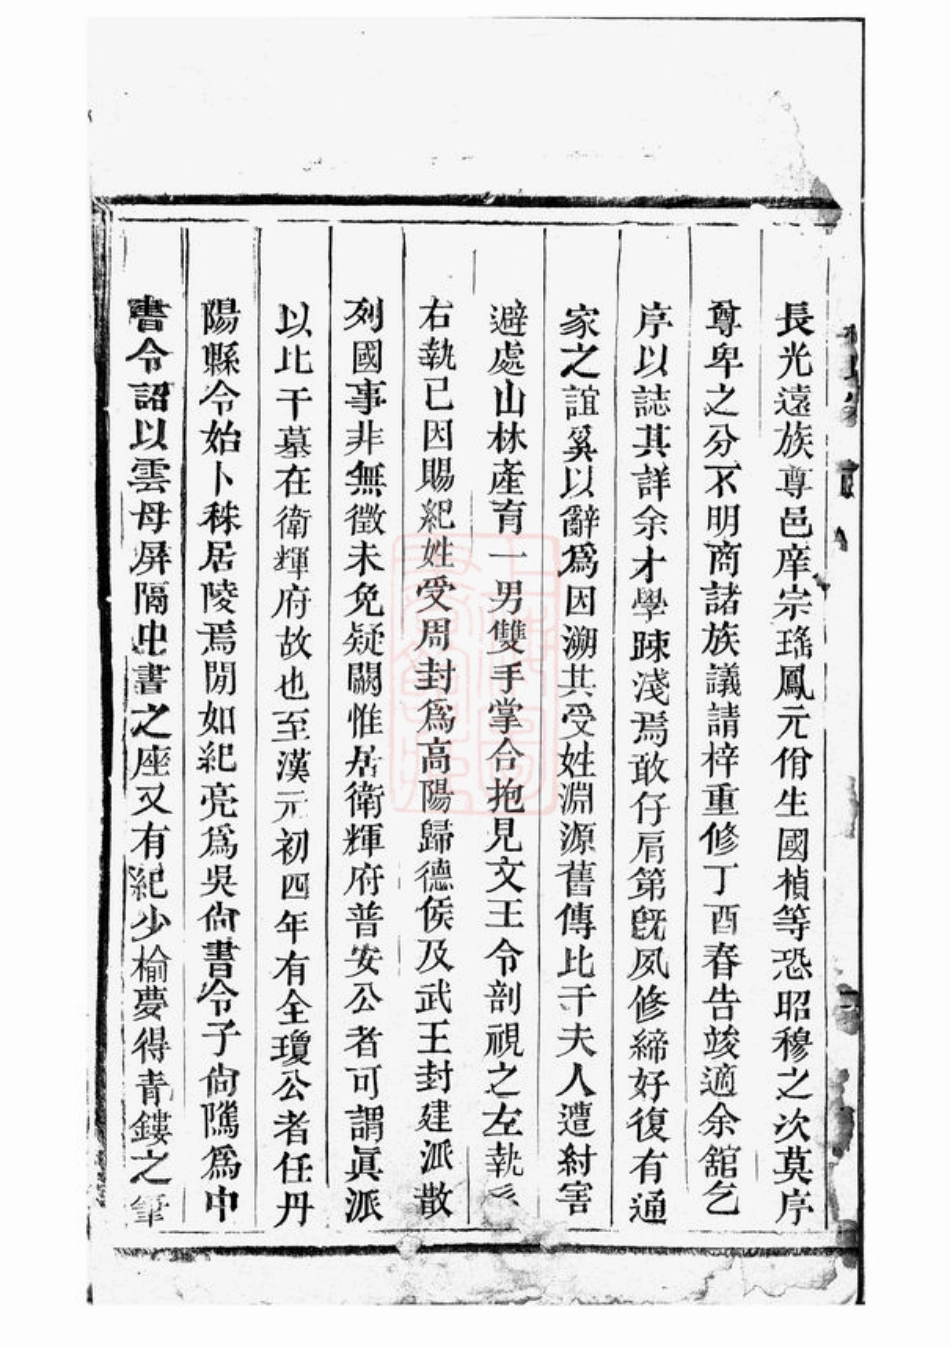 長光遠族尊邑庠宗瑤鳳元佾生國楨等恐昭穆之次莫序
尊卑之分不明商諸族議請梓重修丁酉春告竣適余舘乞
序以誌其詳余才學踈淺焉敢仔肩第既夙修締好復有通
家之誼奚以辭爲因溯其受姓淵源舊傳比干夫人遭紂害
避處山林產育一男雙手掌合抱見文王令剖視之左執糸
右執已因賜紀姓受周封爲高陽歸德侯及武王封建派散
列國事非無徵未免疑闕惟居衛輝府普安公者可謂眞派
以比干墓在衛輝府故也至漢元初四年有全瓊公者任丹
陽縣令始卜秣居陵焉閒如紀亮爲吳尙書令子尙隲爲中
書令詔以雲母屏隔中書之座又有紀少榆夢得青鏤之筆